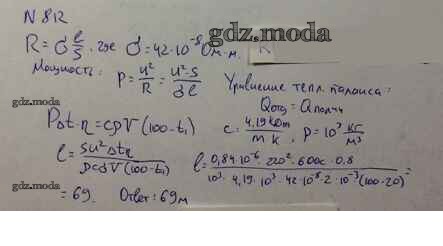 N 8R
gdz.moda
R = ρ l/S, где ρ = 42·10⁻⁸ Ом·м.
Мощность: P = U²/R = U²·S/ρl
Уравнение тепл. баланса:
gdz.moda
Qотд = Qполуч
PΔt·η = cρV(100-t₁)
c = 4,19 кДж/m K, ρ = 10³ кг/м³
l = SU²Δtη/ρcρV(100-t₁)
l = 0,84·10⁻⁶·220²·600·0,8/10³·4,19·10³·42·10⁻⁸·2·10⁻³(100-20) =
gdz.moda
= 69. Ответ: 69 м
gdz.moda